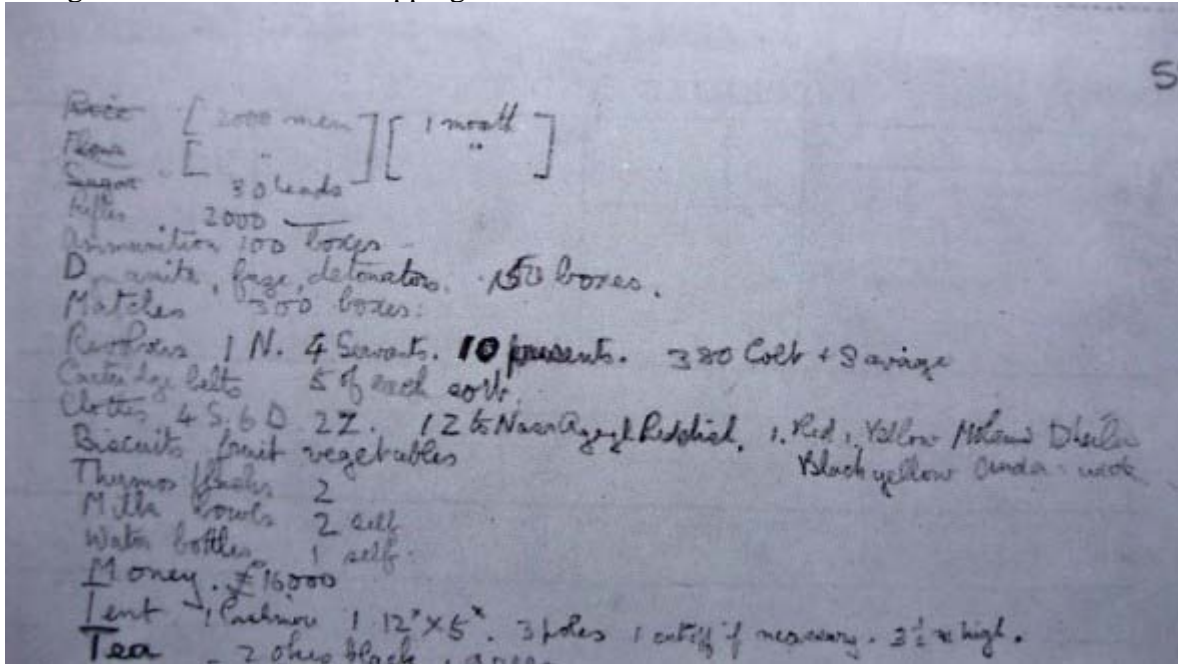 5
Rice [2000 men] [1 month]
Flour [ " ] [ " ]
Sugar 30 loads
Rifles 2000
Ammunition 100 boxes
D anite, fuze, detonators. 150 boxes.
Matches 300 boxes:
Revolvers 1 N. 4 Servants. 10 presents. 380 Colt + Savage
Cartridge belts 5 of each sort.
Clothes 4 S. 6 D. 2 Z. 12 to 1. Red 1. Yellow
Black yellow
Biscuits fruit vegetables
Thermos flasks 2
Milk bowls 2 self
Water bottles 1 self.
Money. £16000
Tent 1 12" x 5". 3 poles 1 if necessary. 3½ x high.
Tea 2 black,